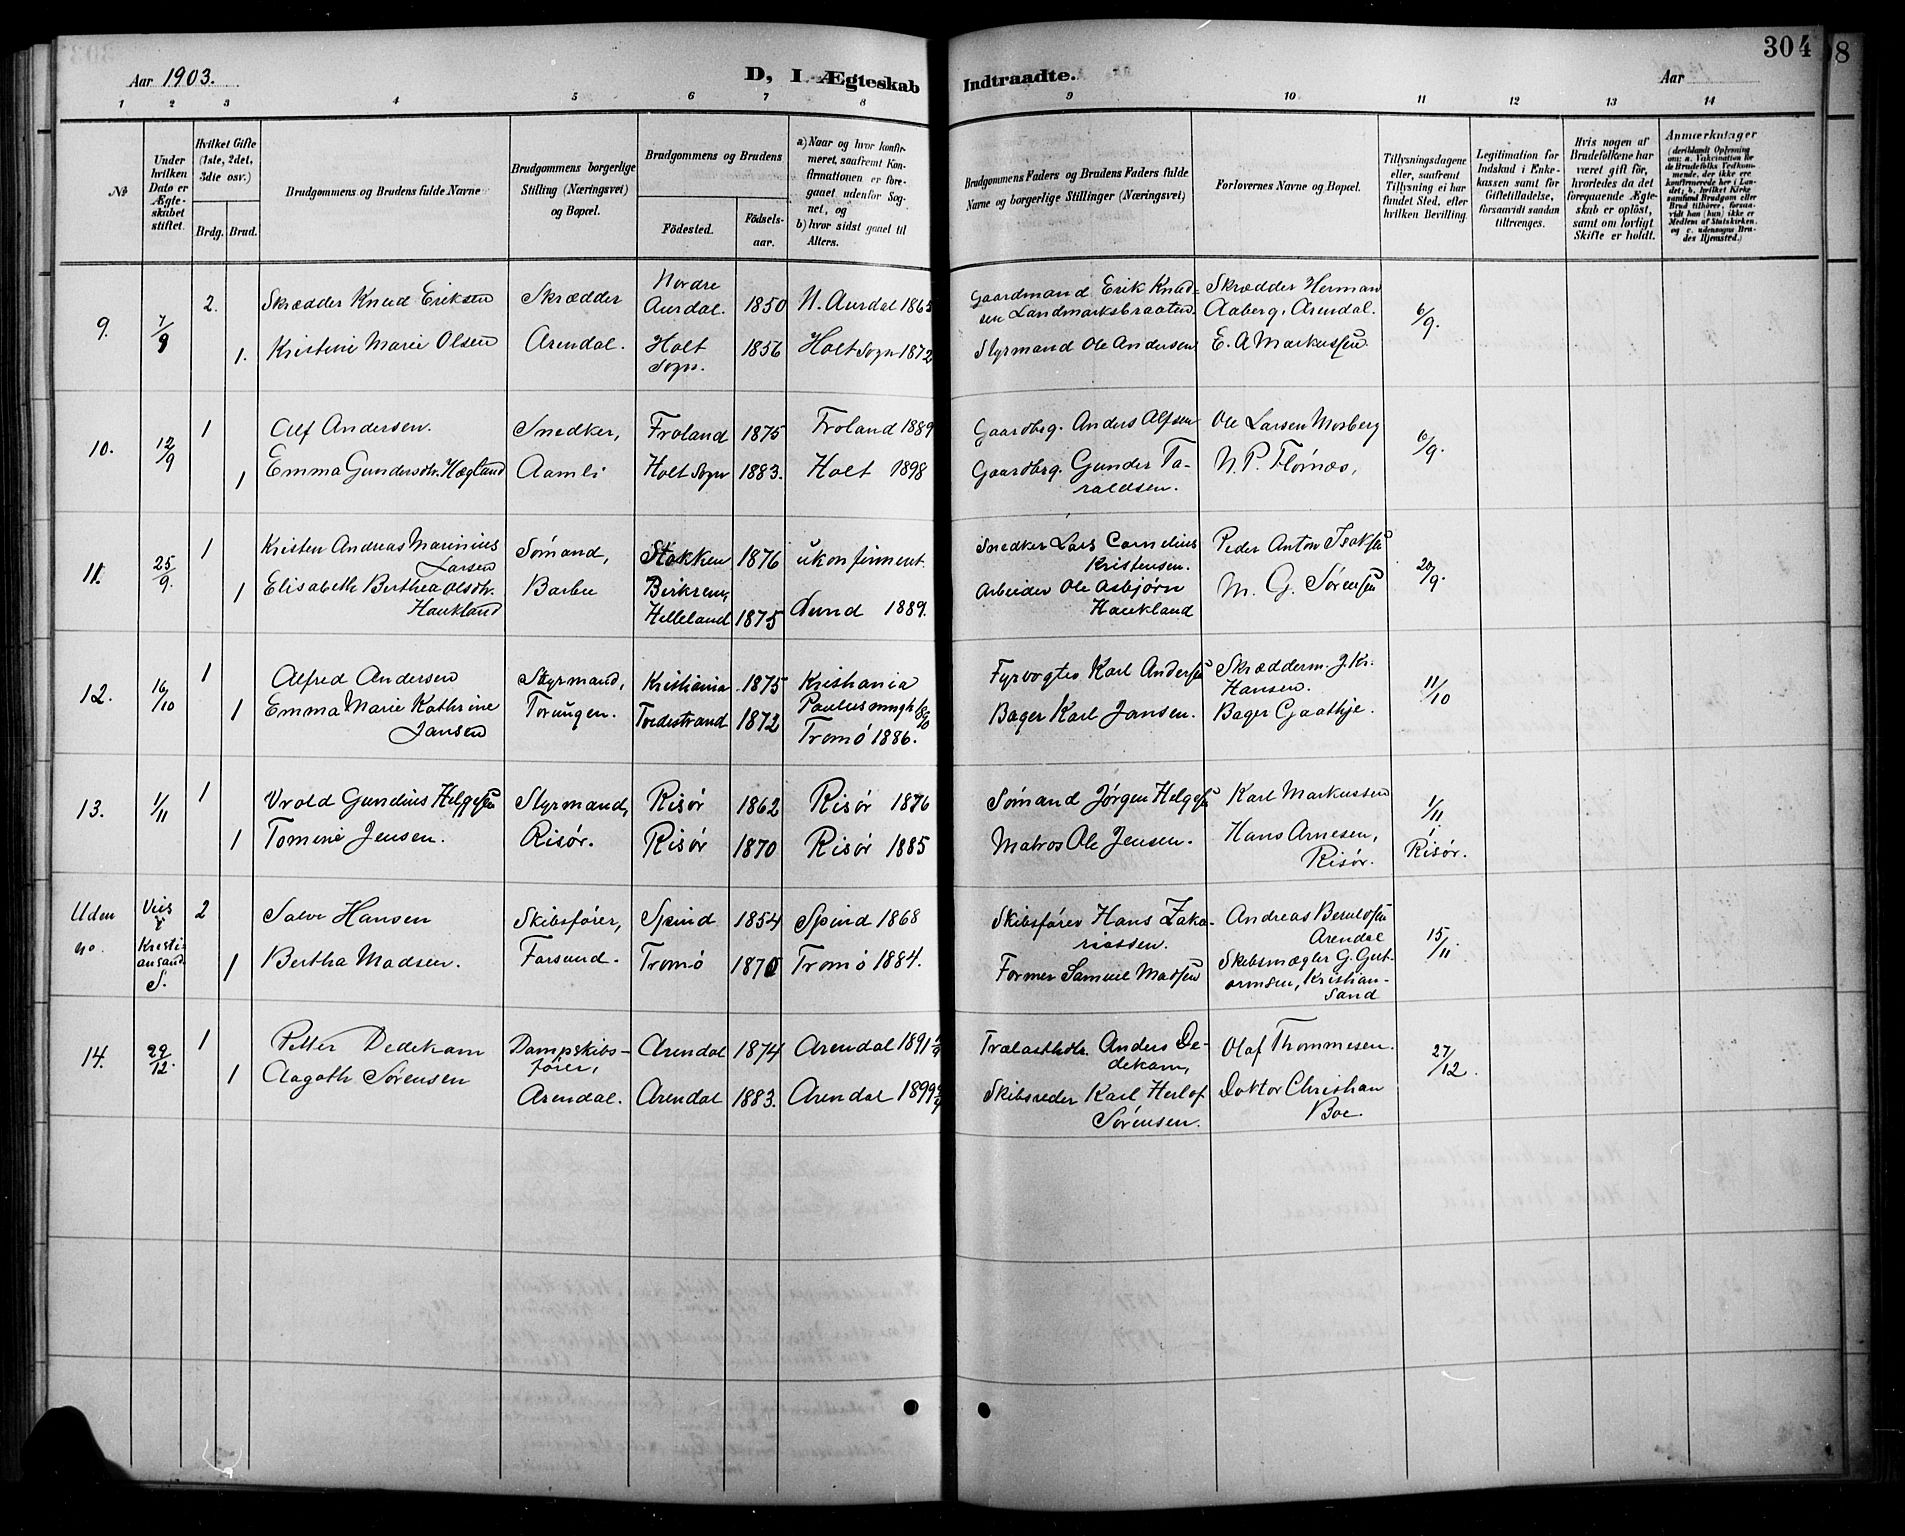 304
Aar 1903.
D, I. Ægteskab Indtraadte.
Aar
1 2 3 4 5 6 7 8 9 10 11 12 13 14
No
Under hvilken Dato er Ægteskabet stiftet.
Hvilket Gifte (1ste, 2det, 3die osv.)
Brdg. Brud.
Brudgommens og Brudens fulde Navne
Brudgommens borgerlige Stilling (Næringsvei) og Bopæl.
Brudgommens og Brudens
Födested. Födselsaar.
a) Naar og hvor konfirmeret, saafremt Konfirmationen er foregaaet udenfor Sognet, og
b) hvor sidst gaaet til Alters.
Brudgommens Faders og Brudens Faders fulde Navne og borgerlige Stillinger (Næringsvei)
Forlovernes Navne og Bopæl.
Tillysningsdagene eller, saafremt Tillysning ei har fundet Sted, efter hvilken Bevilling.
Legitimation for Indskud i Enkekassen samt for Giftetilladelse, forsaavidt saadan tiltrænges.
Hvis nogen af Brudefolkene har været gift för, hvorledes da det foregaaende Ægteskab er oplöst, samt om lovligt Skifte er holdt.
Anmærkninger (deriblandt Oplysning om: a. Vakcination for de Brudefolks Vedkommende, der ikke ere konfirmerede her i Landet; b. hvilket Kirkesamfund Brudgom eller Brud tilhörer, forsaavidt han (hun) ikke er Medlem af Statskirken, og c. udensogns Brudes Hjemsted.)
9. 7/9 2. Skrædder Knud Eriksen Skrædder Nordre Aurdal. 1850 N. Aurdal 1865 Gaardmand Erik Knudsen Landmarksbraaten. Skrædder Herman Aaberg, Arendal. 6/9.
1. Kristine Marie Olsen Arendal. Holt Sogn. 1856 Holt Sogn 1872 Styrmand Ole Andersen E. A Markussen
10. 12/9 1 Alf Andersen. Snedker, Froland 1875 Froland 1889 Gaardbrg. Anders Alfsen Ole Larsen Mosberg 6/9.
1 Emma Gundersdtr. Hægland Aamli Holt Sogn 1883. Holt 1898 Gaardbrg. Gunder Taraldsen. N. P. Flörnæs,
11. 25/9. 1 Kristen Andreas Marinius Larsen Sømand, Stokken 1876 ukonfirmeret. Snedker Lars Cornelius Kristensen. Peder Anton Isaksen 20/9
1 Elisabeth Berthea Olsdtr. Haukland Barbu Birkrem, Helleland 1875 Lund 1889. Arbeider Ole Asbjørn Haukland M. G. Sørensen
12. 16/10 1 Alfred Andersen Styrmand, Kristiania 1875 Kristiania Paulus mngh. 1890 Fyrvogter Karl Andersen Skrædderm. J. Kr. Hansen. 11/10
1 Emma Marie Kathrine Jansen Torungen. Tvedestrand 1872 Tromø 1886. Bager Karl Jansen. Bager Gaathje.
13. 1/11 1 Vrold Gundius Helgesen Styrmand, Risør 1862 Risør 1876 Sømand Jørgen Helgesen Karl Markussen 1/11 i Risør.
1 Tomine Jensen. Risør. Risør 1870 Risør 1885 Matros Ole Jensen. Hans Arnesen, Risør.
Uden No. Vies i Kristiansand S. 2 Salve Hansen Skibsfører, Spind 1854 Spind 1868 Skibsfører Hans Zakariassen. Andreas Berulfsen Arendal 15/11.
1 Bertha Madsen. Farsund. Tromø 1870 Tromø 1884. Former Samuel Madsen Skibsmægler G. Guttormsen, Kristiansand
14. 29/12. 1 Petter Dedekam Dampskibsfører, Arendal 1874 Arendal 1891 Trælasthdlr. Anders Dedekam, Olaf Thommesen. 27/12.
1 Aagoth Sørensen Arendal. Arendal 1883. Arendal 1899 Skibsreder Karl Herlof Sørensen. Doktor Christian Boe.